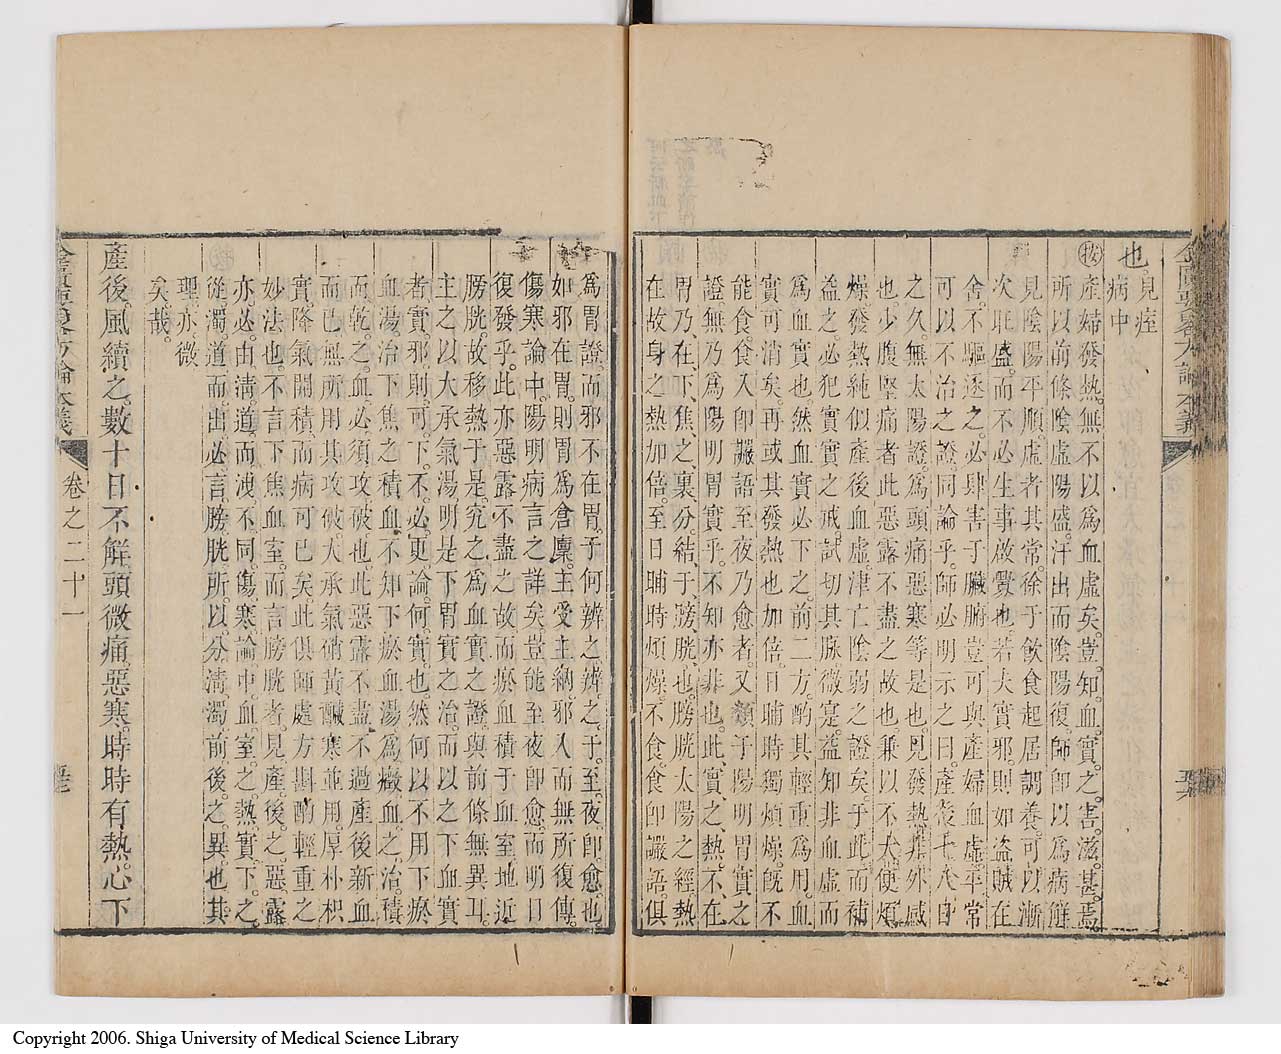 也
見痙
病中
㊊產婦發熱。無不以爲血虛矣。豈知血實之害。滋甚焉。
所以前條陰虛陽盛。汗出而陰陽復。師卽以爲病解
見陰陽平順。虛者其常。徐于飲食起居調養。可以漸
次旺盛。而不必生事啟釁也。若夫實邪。則如盜賊在
舍。不驅逐之。必肆害于臟腑。豈可與產婦血虛平常
可以不治之證。同論乎。師必明示之曰。產後七八日
之久。無太陽證。爲頭痛惡寒等是也。見發熱非外感
也。少腹堅痛者。此惡露不盡之故也。兼以不大便煩
燥發熱。純似產後血虛津亡。陰弱之證矣。于此而補
益之。必犯實實之戒。試切其脉微寔。益知非血虛而
爲血實也。然血實必下之。前二方。酌其輕重爲用。血
實可消矣。再或其發熱也。加倍日晡時。獨煩燥。旣不
能食。食入卽讝語。至夜乃愈者。又類于陽明胃實之
證。無乃爲陽明胃實乎。不知亦非也。此實之熱。不在
胃乃在下焦之裏分。結于膀胱也。膀胱太陽之經熱
在。故身之熱加倍。至日晡時煩燥。不食。食卽讝語。俱
爲胃證。而邪不在胃。于何辨之。辨之于至夜卽愈也。
如邪在胃。則胃爲倉廪。主受主納。邪入而無所復傳。
傷寒論中。陽明病言之詳矣。豈能至夜卽愈。而明日
復發乎。此亦惡露不盡之故。而瘀血積于血室。地近
膀胱。故移熱于是。究之爲血實之證。與前條無異耳。
主之以大承氣湯。明是下胃實之治。而以之下血實
者。實邪則可下。不必更論何實也。然何以不用下瘀
血湯。治下焦之積血。不知下瘀血湯。爲癥血之治。積
而乾之血。必須攻破也。此惡露不盡。不過產後新血
而已。無所用其攻破。大承氣硝黃鹹寒並用。厚朴枳
實降氣開積。而病可已矣。此俱師處方斟酌輕重之
妙法也。不言下焦血室。而言膀胱者。見產後之惡露
亦必由淸道而洩。不同傷寒論中。血室之熱實。下之
從濁道而出。必言膀胱。所以分淸濁前後之異也。其
理亦微
矣哉。
產後風續之。數十日不解。頭微痛。惡寒。時時有熱。心下
卷之二十一
Copyright 2006. Shiga University of Medical Science Library